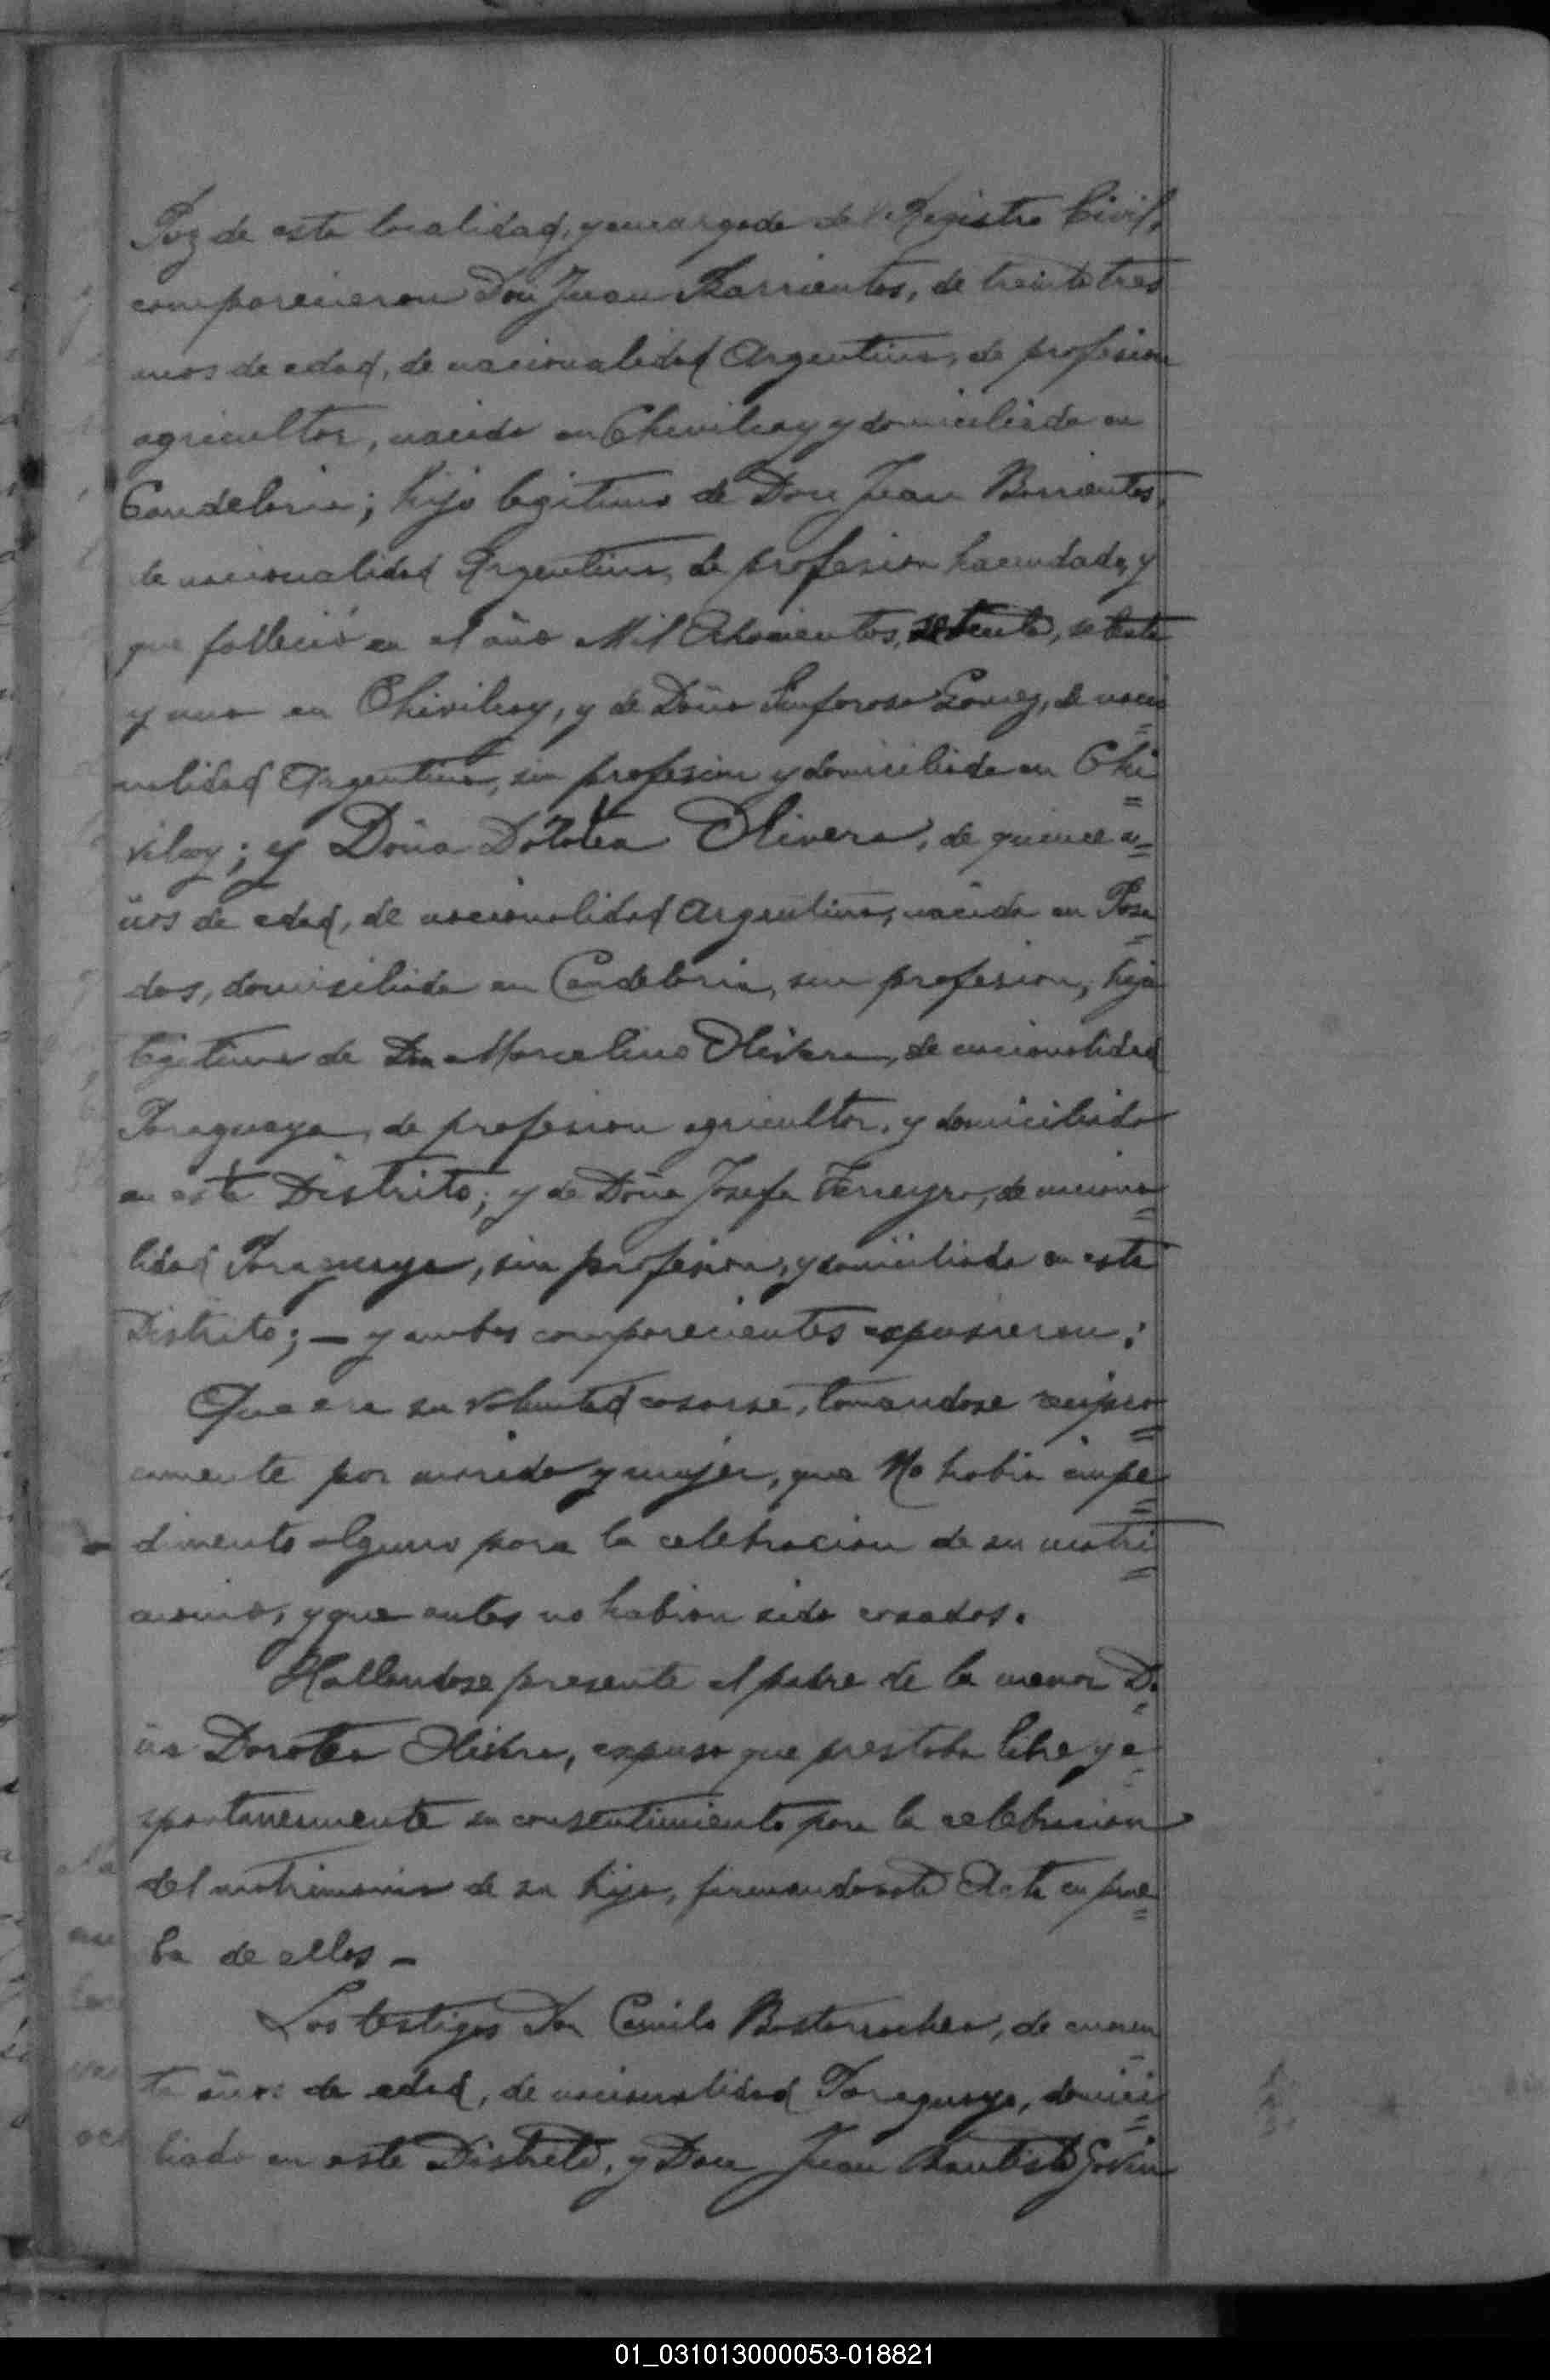 Paz de esta localidad, y encargado del Registro Civil,
comparecieron Don Juan Barrientos, de treinta tres
anos de edad, de nacionalidad Argentina, de profesion
agricultor, nacido en Chivilcoy y domiciliado en
Candelaria; hijo legitimo de Don Juan Barrientos,
de nacionalidad Argentina, de profesion hacendado, y
que fallecio en el año Mil Ochocientos, setenta, setenta
y uno en Chivilcoy, y de Doña Sinforosa Gomez, de nacio
nalidad Argentina, sin profesion y domiciliada en Chi
vilcoy; y Doña Dorotea Olivera, de quince a
ños de edad, de nacionalidad Argentina, nacida en Posa
das, domisiliada en Candelaria, sin profesion, hija
legitima de Don Marcelino Olivera, de nacionalidad
Paraguaya, de profesion agricultor, y domiciliado
en este Distrito; y de Doña Josefa Ferreyra, de naciona
lidad Paraguaya, sin profesion, y domiciliada en este
Distrito; — y ambos comparecientes expusieron:
Que era su voluntad casarse, tomandose recipro
camente por marido y mujer, que No habia impe
dimento alguno para la celebracion de su matri
monio, y que antes no habian sido casados.
Hallandose presente el padre de la menor Do
ña Dorotea Olivera, expuso que prestaba libre y e
spontaneamente su consentimiento para la celebracion
del matrimonio de su hija, firmando este Acta en prue
ba de ellos —
Los testigos Don Camilo de cuaren
ta años de edad, de nacionalidad Paraguaya, domici
liado en este Distrito, y Don Juan Bautista
01_031013000053-018821